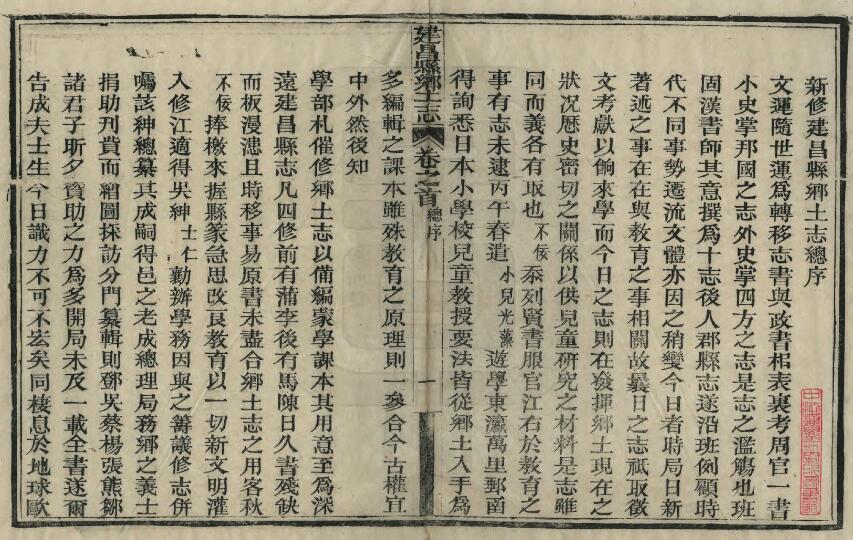 新修建昌縣鄉土志總序
文運隨世運爲轉移志書與政書相表裏考周官一書
小史掌邦國之志外史掌四方之志是志之濫觴也班
固漢書師其意撰爲十志後人郡縣志遂沿班例顧時
代不同事勢遷流文體亦因之稍變今日者時局日新
著述之事在在與教育之事相關故曩日之志祗取徵
文考獻以餉來學而今日之志則在發揮鄉土現在之
狀况歷史密切之關係以供兒童研究之材料是志雖
同而義各有取也不佞忝列賢書服官江右於教育之
事有志未逮丙午春遣小兒光藻遊學東瀛萬里郵函
得詢悉日本小學校兒童教授要法皆從鄉土入手爲
建昌縣鄉土志 卷之首 總序 一
多編輯之課本雖殊教育之原理則一參合今古權宜
中外然後知
學部札催修鄉土志以備編蒙學課本其用意至爲深
遠建昌縣志凡四修前有蒲李後有馬陳日久書殘缺
而板漫漶且時移事易原書未盡合鄉土志之用客秋
不佞捧檄來握縣篆急思改良教育以一切新文明灌
入修江適得吳紳士仁勷辦學務因與之籌議修志併
囑該紳總纂其成嗣得邑之老成總理局務鄉之義士
捐助刋貲而繪圖採訪分門纂輯則鄧吳蔡楊張熊鄒
諸君子昕夕贊助之力爲多開局未及一載全書遂爾
告成夫士生今日識力不可不宏矣同棲息於地球歐